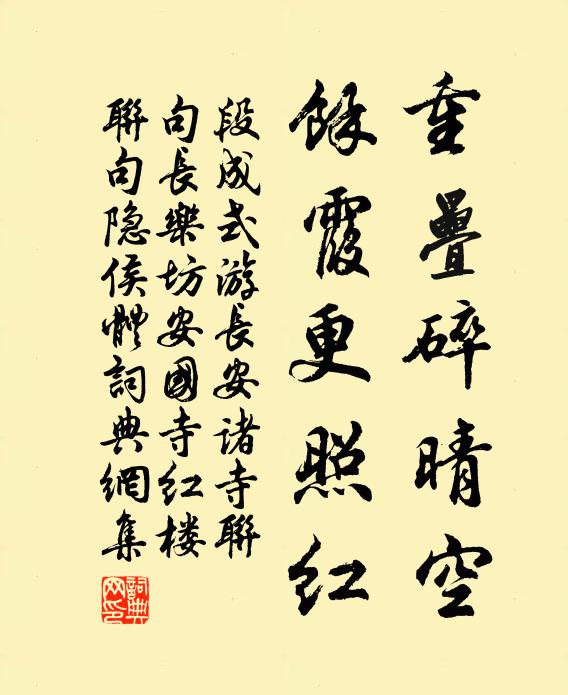 重疊碎晴空
餘霞更照紅
段成式游長安諸寺聯
句長樂坊安國寺红楼
聯句隐侯體詞典網集
詞典網印